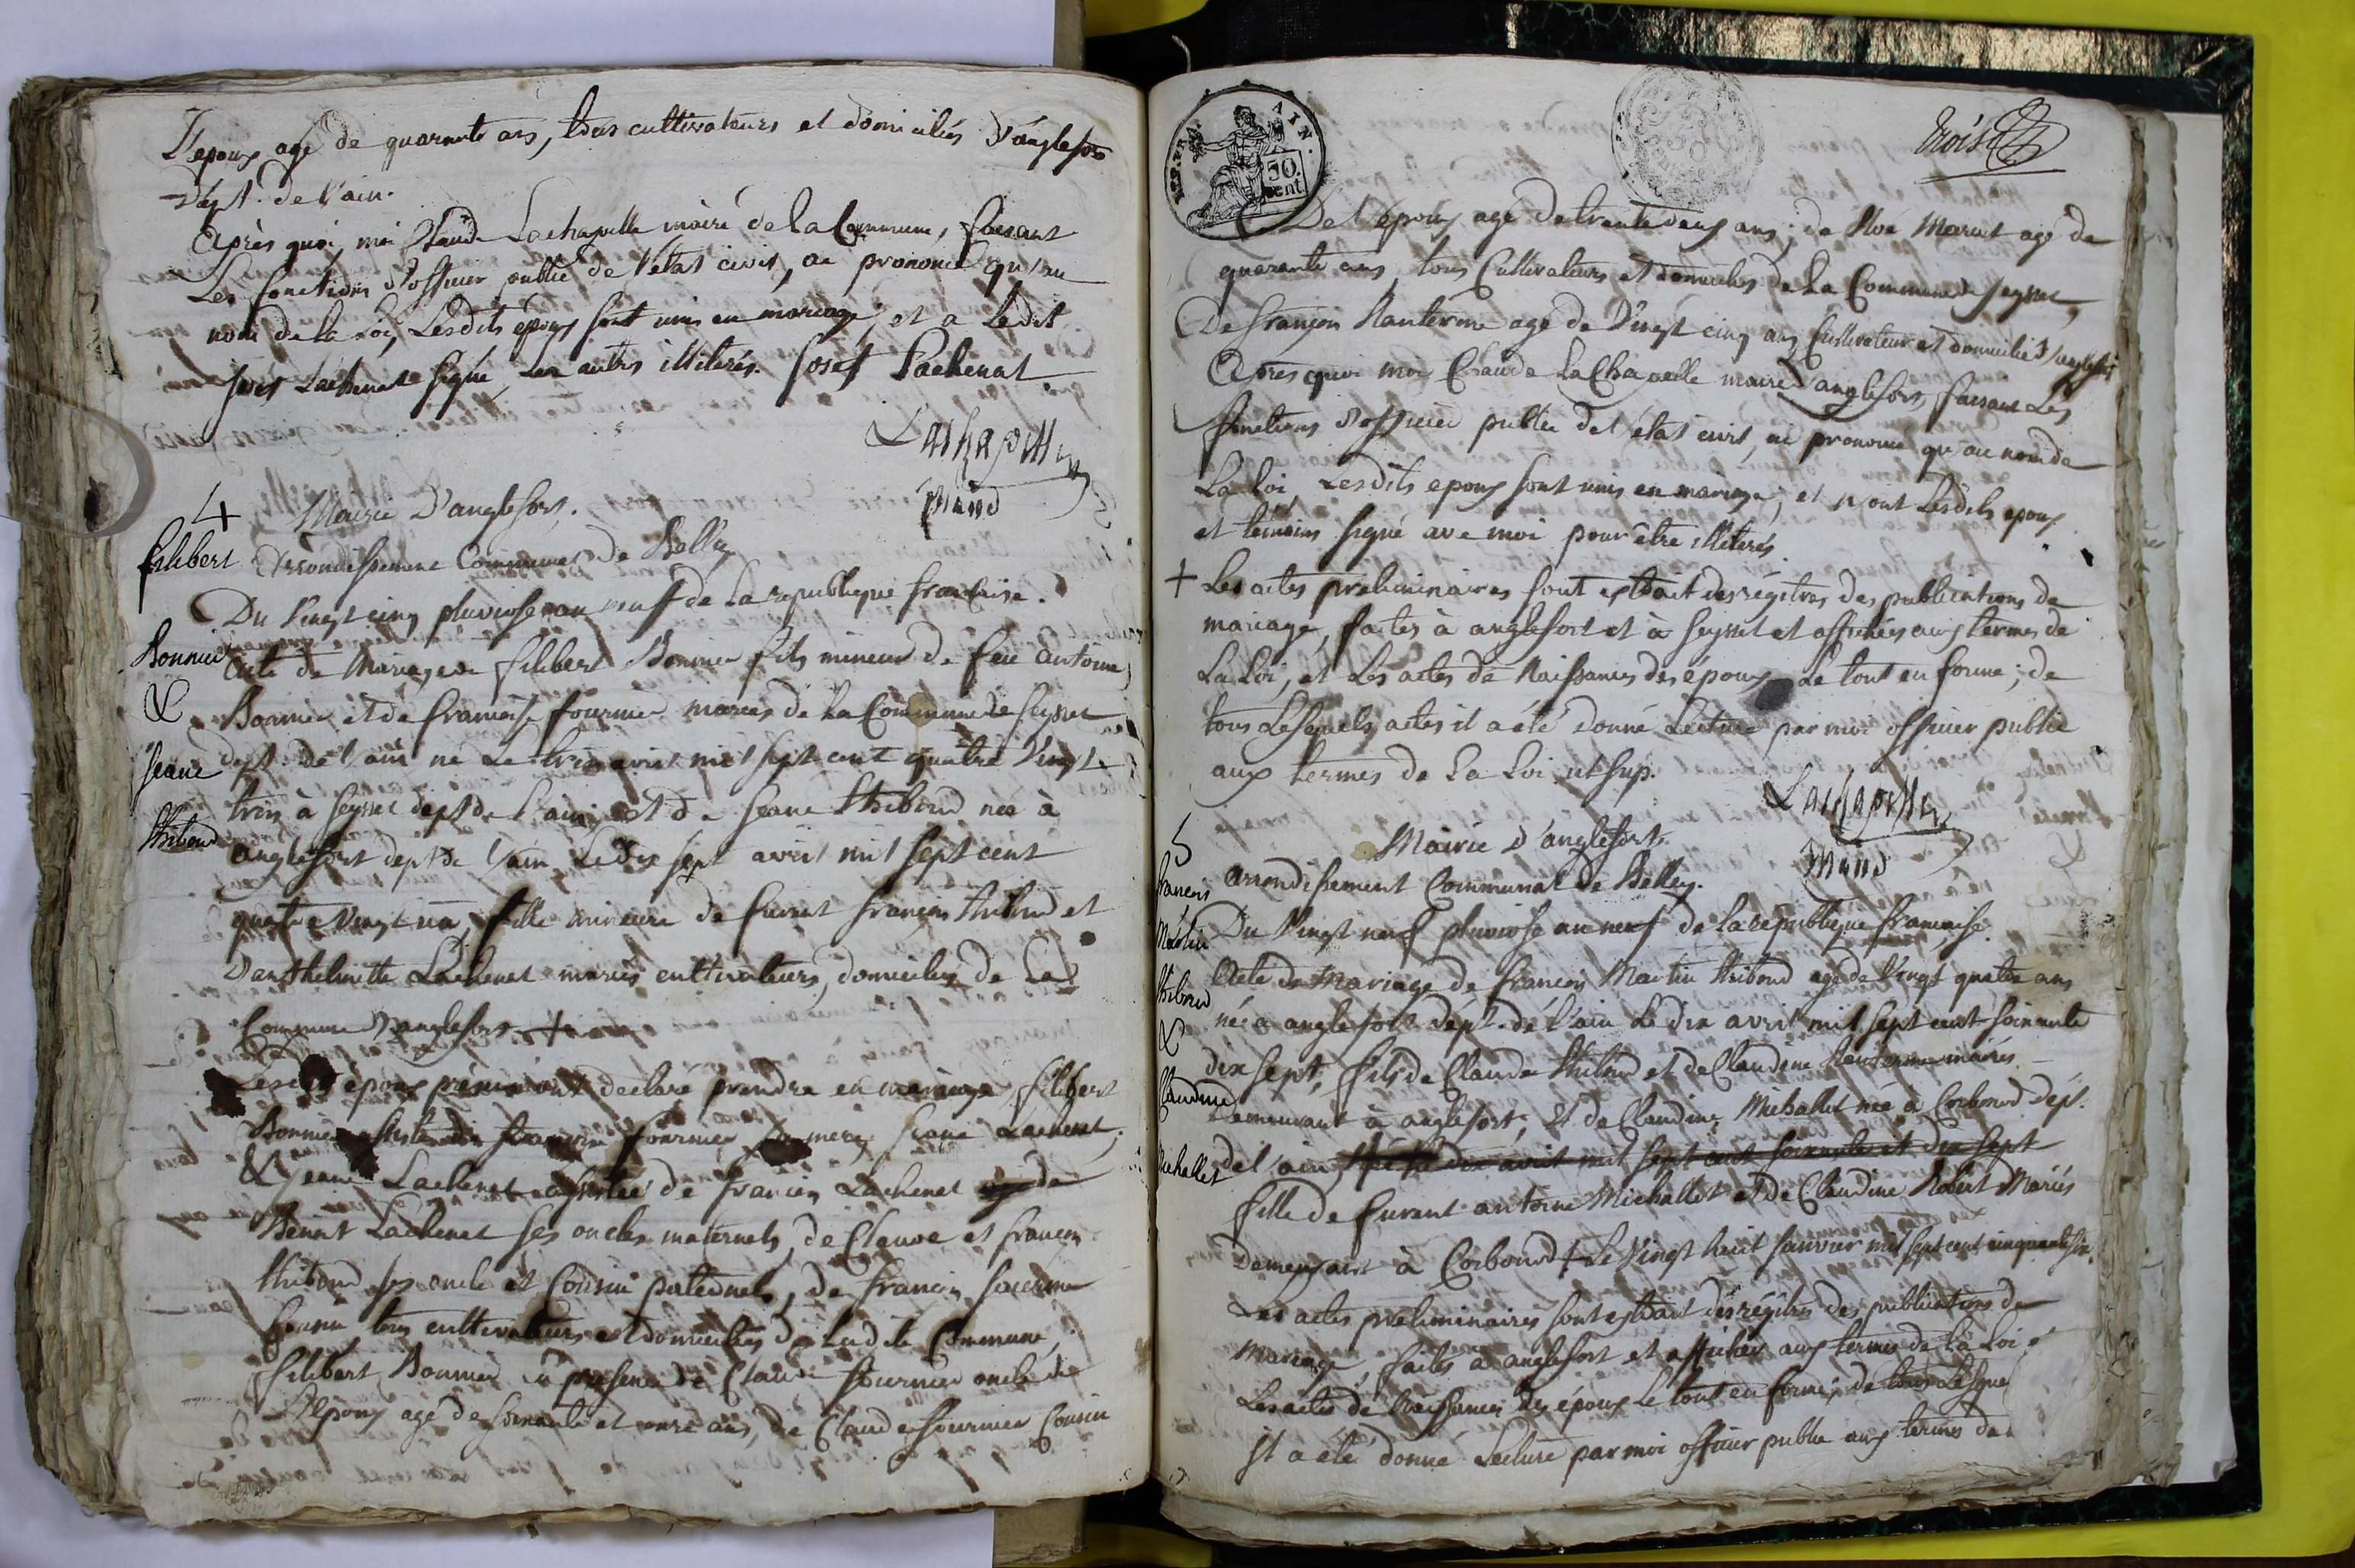 L'epoux agé de quarante ans, tous cultivateurs et domiciliés d'anglefort
dépt. de l'ain.
Après quoi, moi Claude Lachapelle maire de la Commune, faisant
Les fonctions d'officier public de l'état civil, ai prononcé qu'au
nom de la Loi, Lesdits époux sont unis en mariage, et a Ledit
Lachenat signé, les autres illiterés. Josef Lachenat
Lachapelle
Maire
4
Mairie D'anglefort.
filibert
Arrondissement Communal de Belley
Du vingt cinq pluviose an neuf de la republique francaise.
Bonnier
Acte de Mariage de filibert Bonnier fils mineur de feu antoine
&
Bonnier et de francoise fournier mariés de la Commune de Seyssel
Jeane
dept. de l'ain né Le trois avril mil sept cent quatre vingt
trois à Seyssel dept de l'ain, et de Jeane thiboud née à
thiboud
anglefort dept de l'ain, Le dix sept avril mil sept cent
quatre vingt un, fille mineure de furent françois thiboud et
Danthelmette Lachenat mariés cultivateurs, domiciliés de La
Commune d'anglefort +
Lesdits époux présens ont déclaré prendre en mariage filibert
Bonnier assisté de francoise fournier sa mere, Jeane Lachenat,
& Jeane Lachenat assistée de francois Lachenat de
Benoit Lachenat ses oncles maternels, de Claude et francois
thiboud ses oncle et Cousin paternels, de francois
Cousin tous cultivateurs et domiciliés de Ladite Commune,
filibert Bonnier en présence de Claude fournier oncle de
l'époux agé de soixante et onze ans, de Claude fournier Cousin
REP. FRA. AIN.
50 cent.
trois
De l'époux agé de trente deux ans, de Maruet agé de
quarante ans, tous Cultivateurs et domiciliés de la Commune de Seyssel,
De françois Nanterme agé de vingt cinq ans Cultivateur et domicilié d'anglefort
Après quoi moi Claude LaChapelle maire d'anglefort, faisant Les
fonctions d'officier public de l'état civil, ai prononcé qu'au nom de
La Loi, Lesdits epoux sont unis en mariage, et n'ont Lesdits epoux
et témoins signé avec moi pour être illiterés.
+ Les actes préliminaires sont extrait des régitres des publications de
mariage, faites à anglefort et à Seyssel et affichées aux termes de
La Loi, et Les actes de Naissances des époux Le tout en forme; de
tous Lesquels actes il a été donné Lecture par moi officier public
aux termes de La Loi. ut sup.
Lachapelle
Maire
5
Mairie d'anglefort.
francois
arrondissement Communal de Belley.
Martin
Du vingt neuf pluviose an neuf de la république francaise.
thiboud
Acte de Mariage de francois Martin thiboud agé de vingt quatre ans
&
né à anglefort dépt. de l'ain Le dix avril mil sept cent soixante
dix sept, fils de Claude thiboud et de Claudine Nanterme mariés
Claudine
Demeurant à anglefort, Et de Claudine Michallet née à Corbonod dépt.
Michallet
de l'ain, dix avril mil sept cent soixante et dix sept
fille de furent antoine Michallet et de Claudine Robert Mariés
Demeurant à Corbonod + Le vingt huit Janvier mil sept cent cinquante six.
Les actes préliminaires sont extrait des régitres des publications de
Mariage, faites à anglefort et affichées aux termes de la Loi &
Les actes de Naissances des époux Le tout en forme; de tous Lesquels
Il a été donné Lecture par moi officier public aux termes de